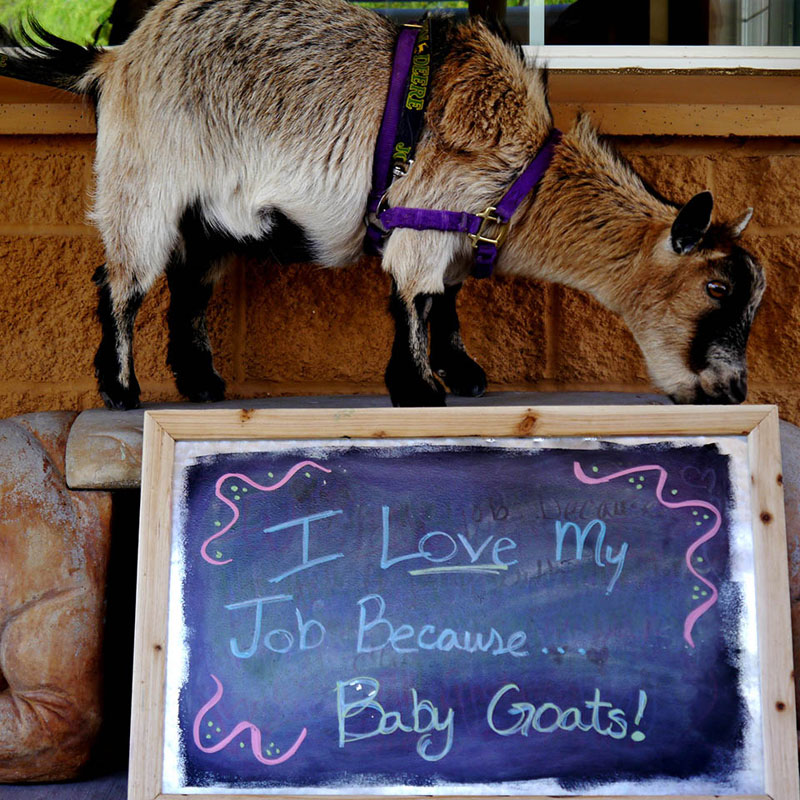 DEERE
Jo
I Love My
Job Because...
Baby Goats!